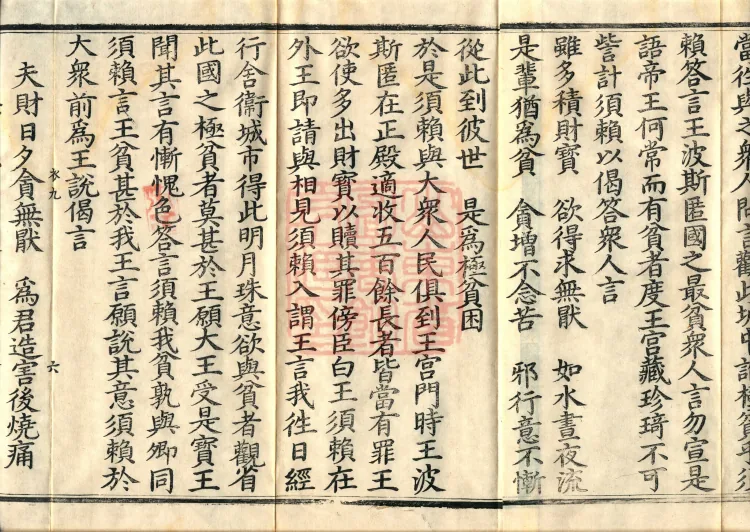 當往與之衆人
賴答言王波斯匿國之最貧衆人言勿宣是
語帝王何常而有貧者度王宮藏珍琦不可
訾計須賴以偈答衆人言
雖多積財寶 欲得求無厭 如水晝夜流
是輩猶為貧 貪增不念苦 邪行意不慚
從此到彼世 是為極貧困
於是須賴與大衆人民俱到王宮門時王波
斯匿在正殿適收五百餘長者皆當有罪王
欲使多出財寶以贖其罪傍臣白王須賴在
外王即請與相見須賴入謂王言我徃日經
行舍衞城市得此明月珠意欲與貧者觀省
此國之極貧者莫甚於王願大王受是寶王
聞其言有慚愧色答言須賴我貧孰與卿同
須賴言王貧甚於我王言願說其意須賴於
大衆前為王說偈言
衣九 六
夫財日夕貪無猒 為君造害後燒痛